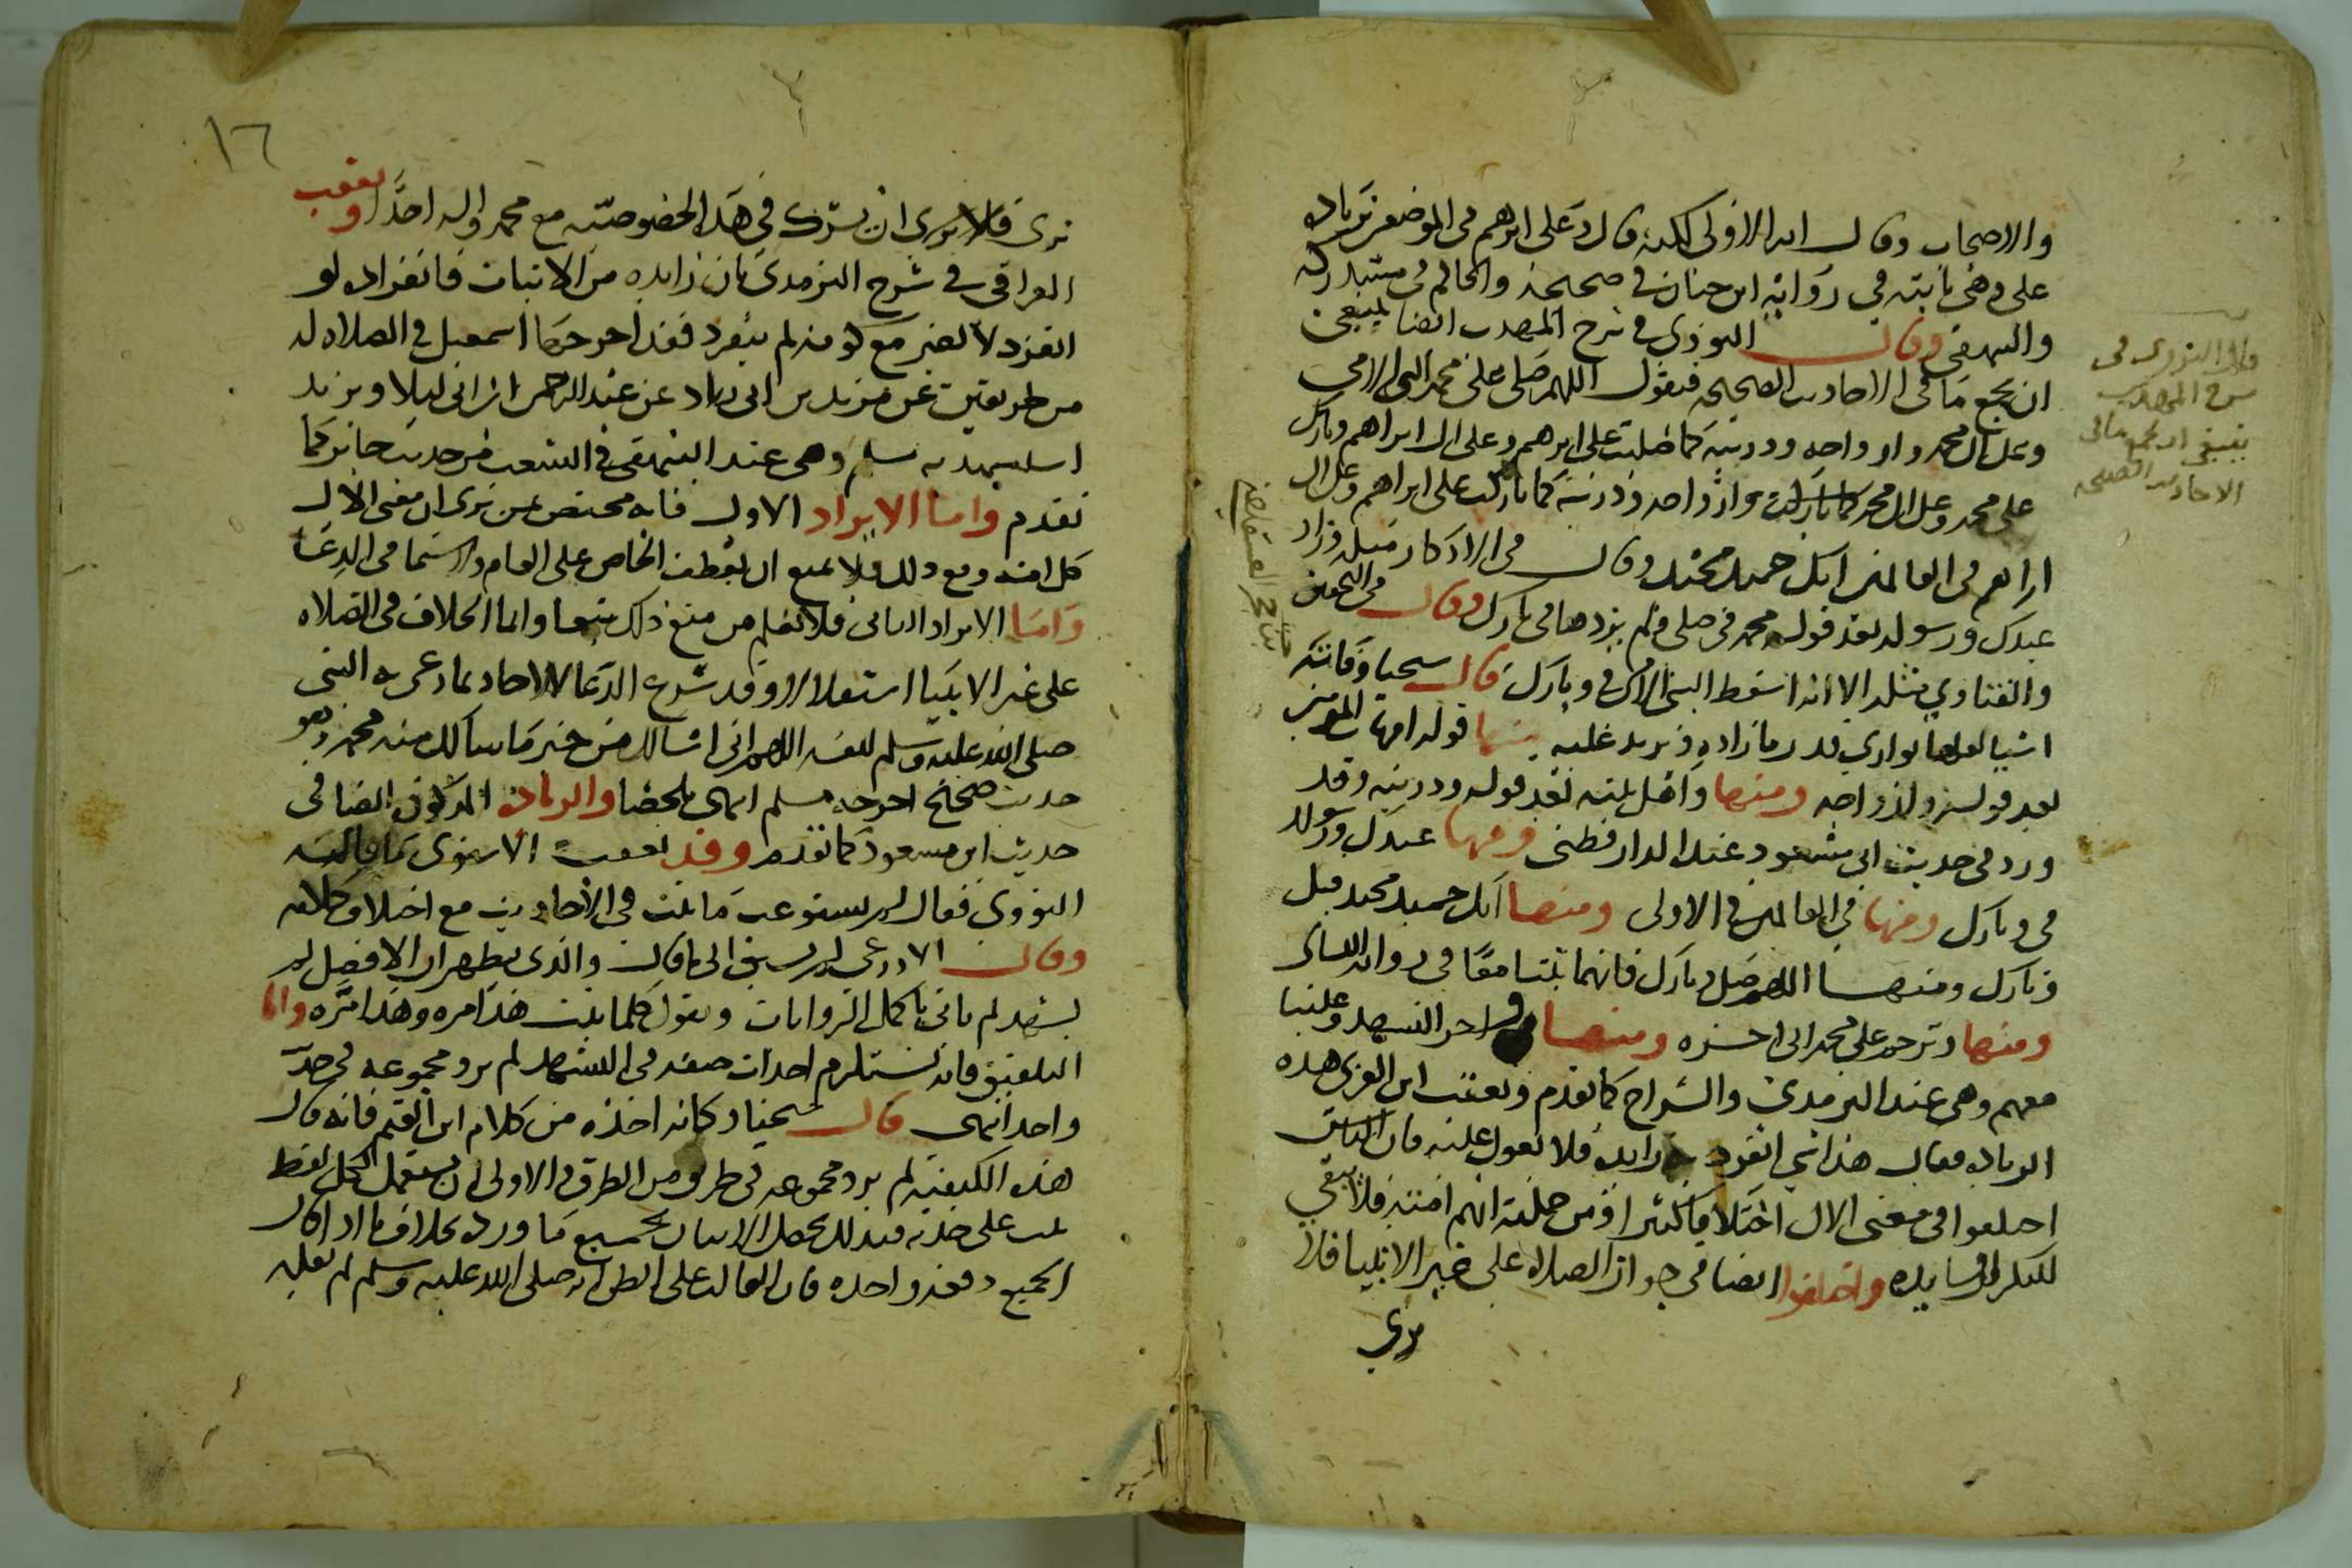 والاصحاب وقال انه الاولى لكنه قال وعلى ابرهم في الموضعين بزياده
على وهى ثابته في رواية ابن حبان في صحيحه والحاكم في مستدركه
والبيهقي وقال النووي في شرح المهذب ايضا ينبغى
ان يجمع ما في الاحاديث الصحيحه فيقول اللهم صل على محمد النبي الامي
وعلى ال محمد وازواجه وذريته كما صليت على ابرهيم وعلى ال ابراهيم وبارك
على محمد وعلى ال محمد وازواجه وذريته كما باركت على ابراهيم وعلى ال
ابراهيم في العالمين انك حميد مجيد وقال في الاذكار مثله وزاد
عبدك ورسولك بعد قوله محمد في صل ولم يزدها في بارك وقال في التحقيق
والفتاوي مثله الا انه اسقط النبي الامي في وبارك قال شيخنا وفاته
اشيا لعلها توازي قدر ما زاده وتزيد عليه منها قوله امهات المومنين
بعد قوله وازواجه ومنها واهل بيته بعد قوله وذريته وقد
ورد في حديث ابى مسعود عند الدارقطنى ومنها عبدك ورسولك
في وبارك ومنها في العالمين في الاولى ومنها انك حميد مجيد قبل
وبارك ومنها اللهم صل وبارك فانهما ثبتا معا في رواية للنسائى
ومنها وترحم على محمد الى اخره ومنها في اخر التشهد وعلينا
معهم وهى عند الترمذى والسراج كما تقدم وتعقب ابن العربى هذه
الزياده فقال هذا شي انفرد به زايده فلا يعول عليه فان الناس
اختلفوا في معنى الال اختلافا كثيرا ومن جملته انهم امته فلا يبقى
للتكرار فايده واختلفوا ايضا في جواز الصلاة على غير الانبيا فلا
نرى
قال النووى في
شرح المهذب
ينبغى ان يجمع ما في
الاحاديث الصحيحه
نرى فلا نرى ان يشرك في هذه الخصوصية مع محمد واله احدا وتعقب
العراقى في شرح الترمذى بان زايده من الاثبات فانفراده لو
انفرد لا يضر مع كونه لم ينفرد فقد اخرجها اسمعيل في الصلاه له
من طريقين عن يزيد بن ابى زياد عن عبد الرحمن ابن ابى ليلا ويزيد
استشهد به مسلم وهى عند البيهقى في الشعب من حديث جابر كما
تقدم واما الايراد الاول فانه مختص بمن يرى ان معنى الال
كل امته ومع ذلك فلا يمنع ان يعطف الخاص على العام ولاسيما في الدعا
واما الايراد الثانى فلا نعلم من منع ذلك تبعا وانما الخلاف في الصلاه
على غير الانبيا استقلالا وقد شرع الدعا للاحاد بما دعى به النبى
صلى الله عليه وسلم لنفسه اللهم انى اسالك من خير ما سالك منه محمد وهو
حديث صحيح اخرجه مسلم انتهى ملخصا والزيادة المذكوره ايضا في
حديث ابن مسعود كما تقدم وقد تعقب الاسنوى ما قاله
النووى فقال لم يستوعب ما ثبت في الاحاديث مع اختلاف كلامه
وقال الاذرعى لم يسبق الى ما قال والذى يظهر ان الافضل لمن
يشهد ان ياتى باكمل الروايات ويقول كلما ثبت هذا مره وهذا مره واما
التلفيق فانه يستلزم احداث صفه في التشهد لم يرد مجموعه في حديث
واحد انتهى قال شيخنا وكانه اخذه من كلام ابن القيم فانه قال
هذه الكيفية لم ترد مجموعه في طريق من الطرق والاولى ان يستعمل كل لفظ
ثبت على حدته فبذلك يحصل الاتيان بجميع ما ورد بخلاف ما اذا قال
الجميع دفعه واحده فان الغالب على الظن انه صلى الله عليه وسلم لم يقله
١٦